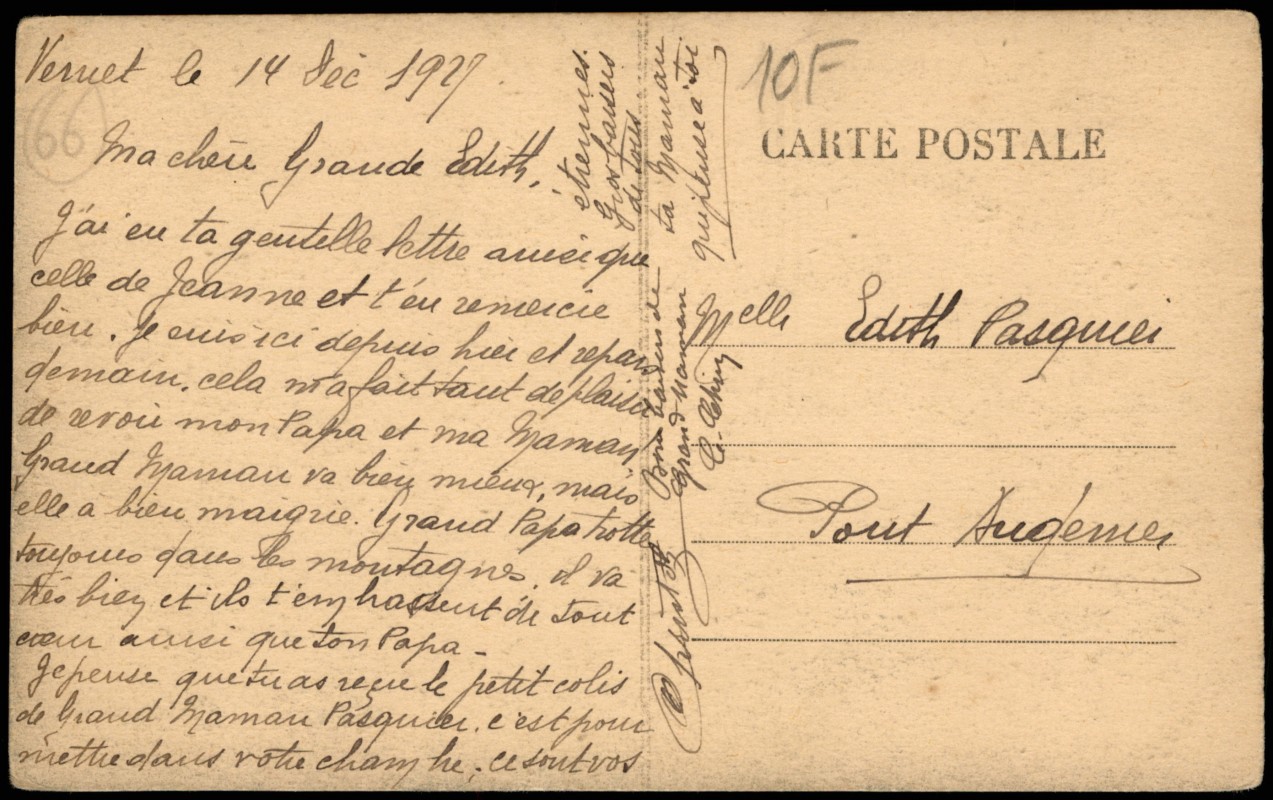 Vernet le 14 Déc 1927.
66
Ma chère Grande Edith,
J'ai eu ta gentille lettre ainsi que
celle de Jeanne et t'en remercie
bien. Je suis ici depuis hier et repars
demain. cela m'a fait tant de plaisir
de revoir mon Papa et ma Maman,
Grand Maman va bien mieux, mais
elle a bien maigrie. Grand Papa trotte
toujours dans les montagnes, il va
très bien et ils t'embrassent de tout
cœur ainsi que ton Papa -
Je pense que tu as reçu le petit colis
de Grand Maman Pasquier. c'est pour
mettre dans votre chambre, ce sont vos
étrennes.
Gros baisers
de tous
ta Maman
qui pense à toi
Bons baisers de
Grand Maman
10F
CARTE POSTALE
Melle Edith Pasquier
Pont Audemer